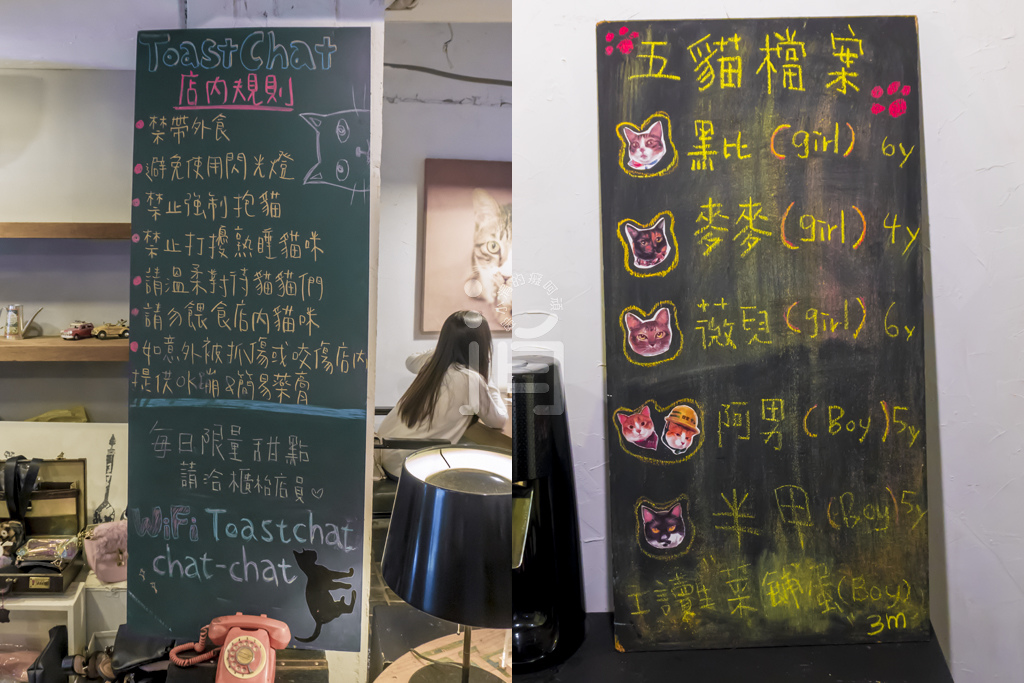 ToastChat
店內規則
禁帶外食
避免使用閃光燈
禁止強制抱貓
禁止打擾熟睡貓咪
請溫柔對待貓貓們
請勿餵食店內貓咪
如意外被抓傷或咬傷店內
提供OK繃&簡易藥膏
每日限量甜點
請洽櫃枱店員♡
WiFi Toastchat
chat-chat
五貓檔案
黑比 (girl) 6y
麥麥 (girl) 4y
薇兒 (girl) 6y
阿男 (Boy) 5y
半甲 (Boy) 5y
生菜 (Boy)
3m